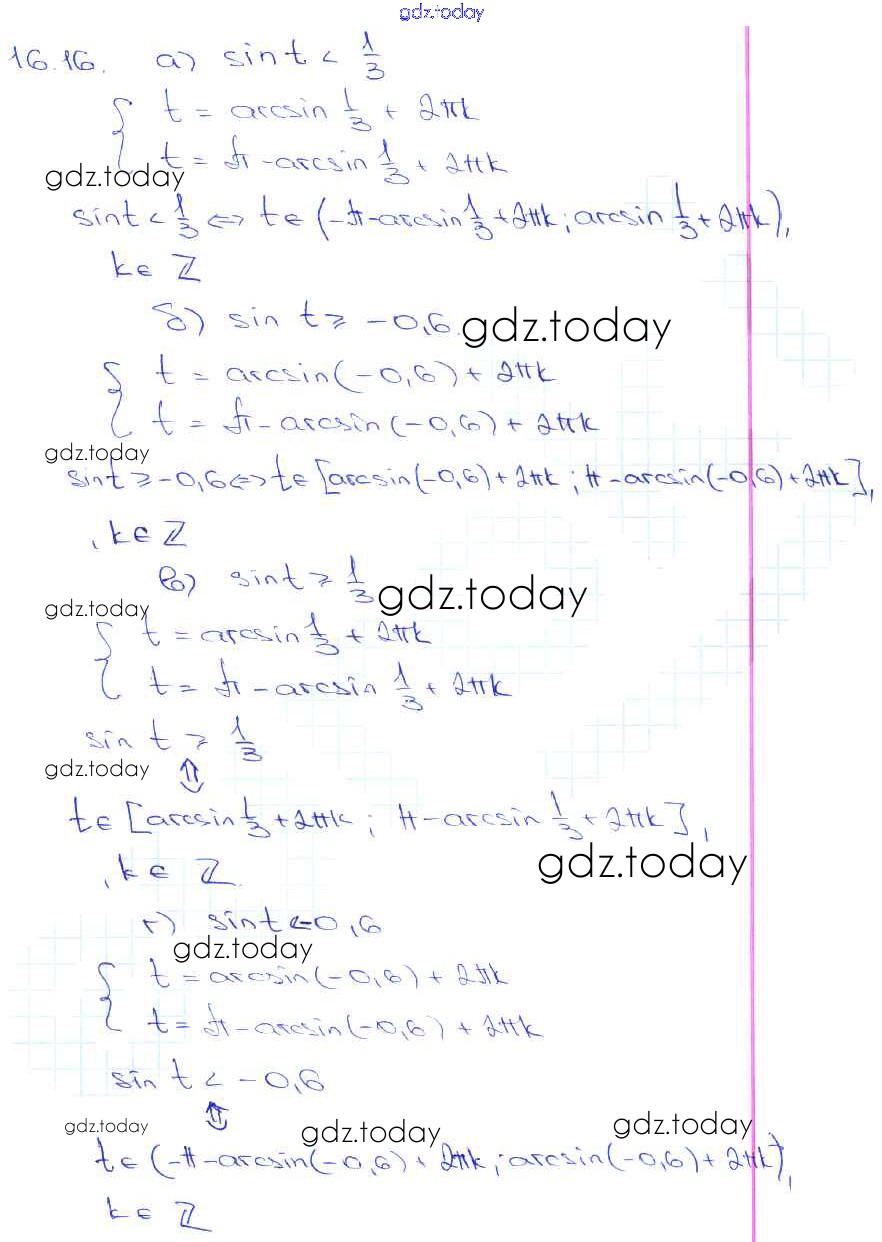 gdz.today
16.16. а) sin t < 1/3
{ t = arcsin 1/3 + 2πk
t = π - arcsin 1/3 + 2πk
gdz.today
sin t < 1/3 <=> t ∈ (-π - arcsin 1/3 + 2πk; arcsin 1/3 + 2πk),
k ∈ ℤ
б) sin t ≥ -0,6 gdz.today
{ t = arcsin(-0,6) + 2πk
t = π - arcsin(-0,6) + 2πk
gdz.today
sin t ≥ -0,6 <=> t ∈ [arcsin(-0,6) + 2πk; π - arcsin(-0,6) + 2πk],
, k ∈ ℤ
в) sin t ≥ 1/3
gdz.today
gdz.today
{ t = arcsin 1/3 + 2πk
t = π - arcsin 1/3 + 2πk
sin t ≥ 1/3
gdz.today ⇕
t ∈ [arcsin 1/3 + 2πk; π - arcsin 1/3 + 2πk],
, k ∈ ℤ. gdz.today
г) sin t < -0,6
gdz.today
{ t = arcsin(-0,6) + 2πk
t = π - arcsin(-0,6) + 2πk
sin t < -0,6
⇕
gdz.today gdz.today gdz.today
t ∈ (-π - arcsin(-0,6) + 2πk; arcsin(-0,6) + 2πk),
k ∈ ℤ